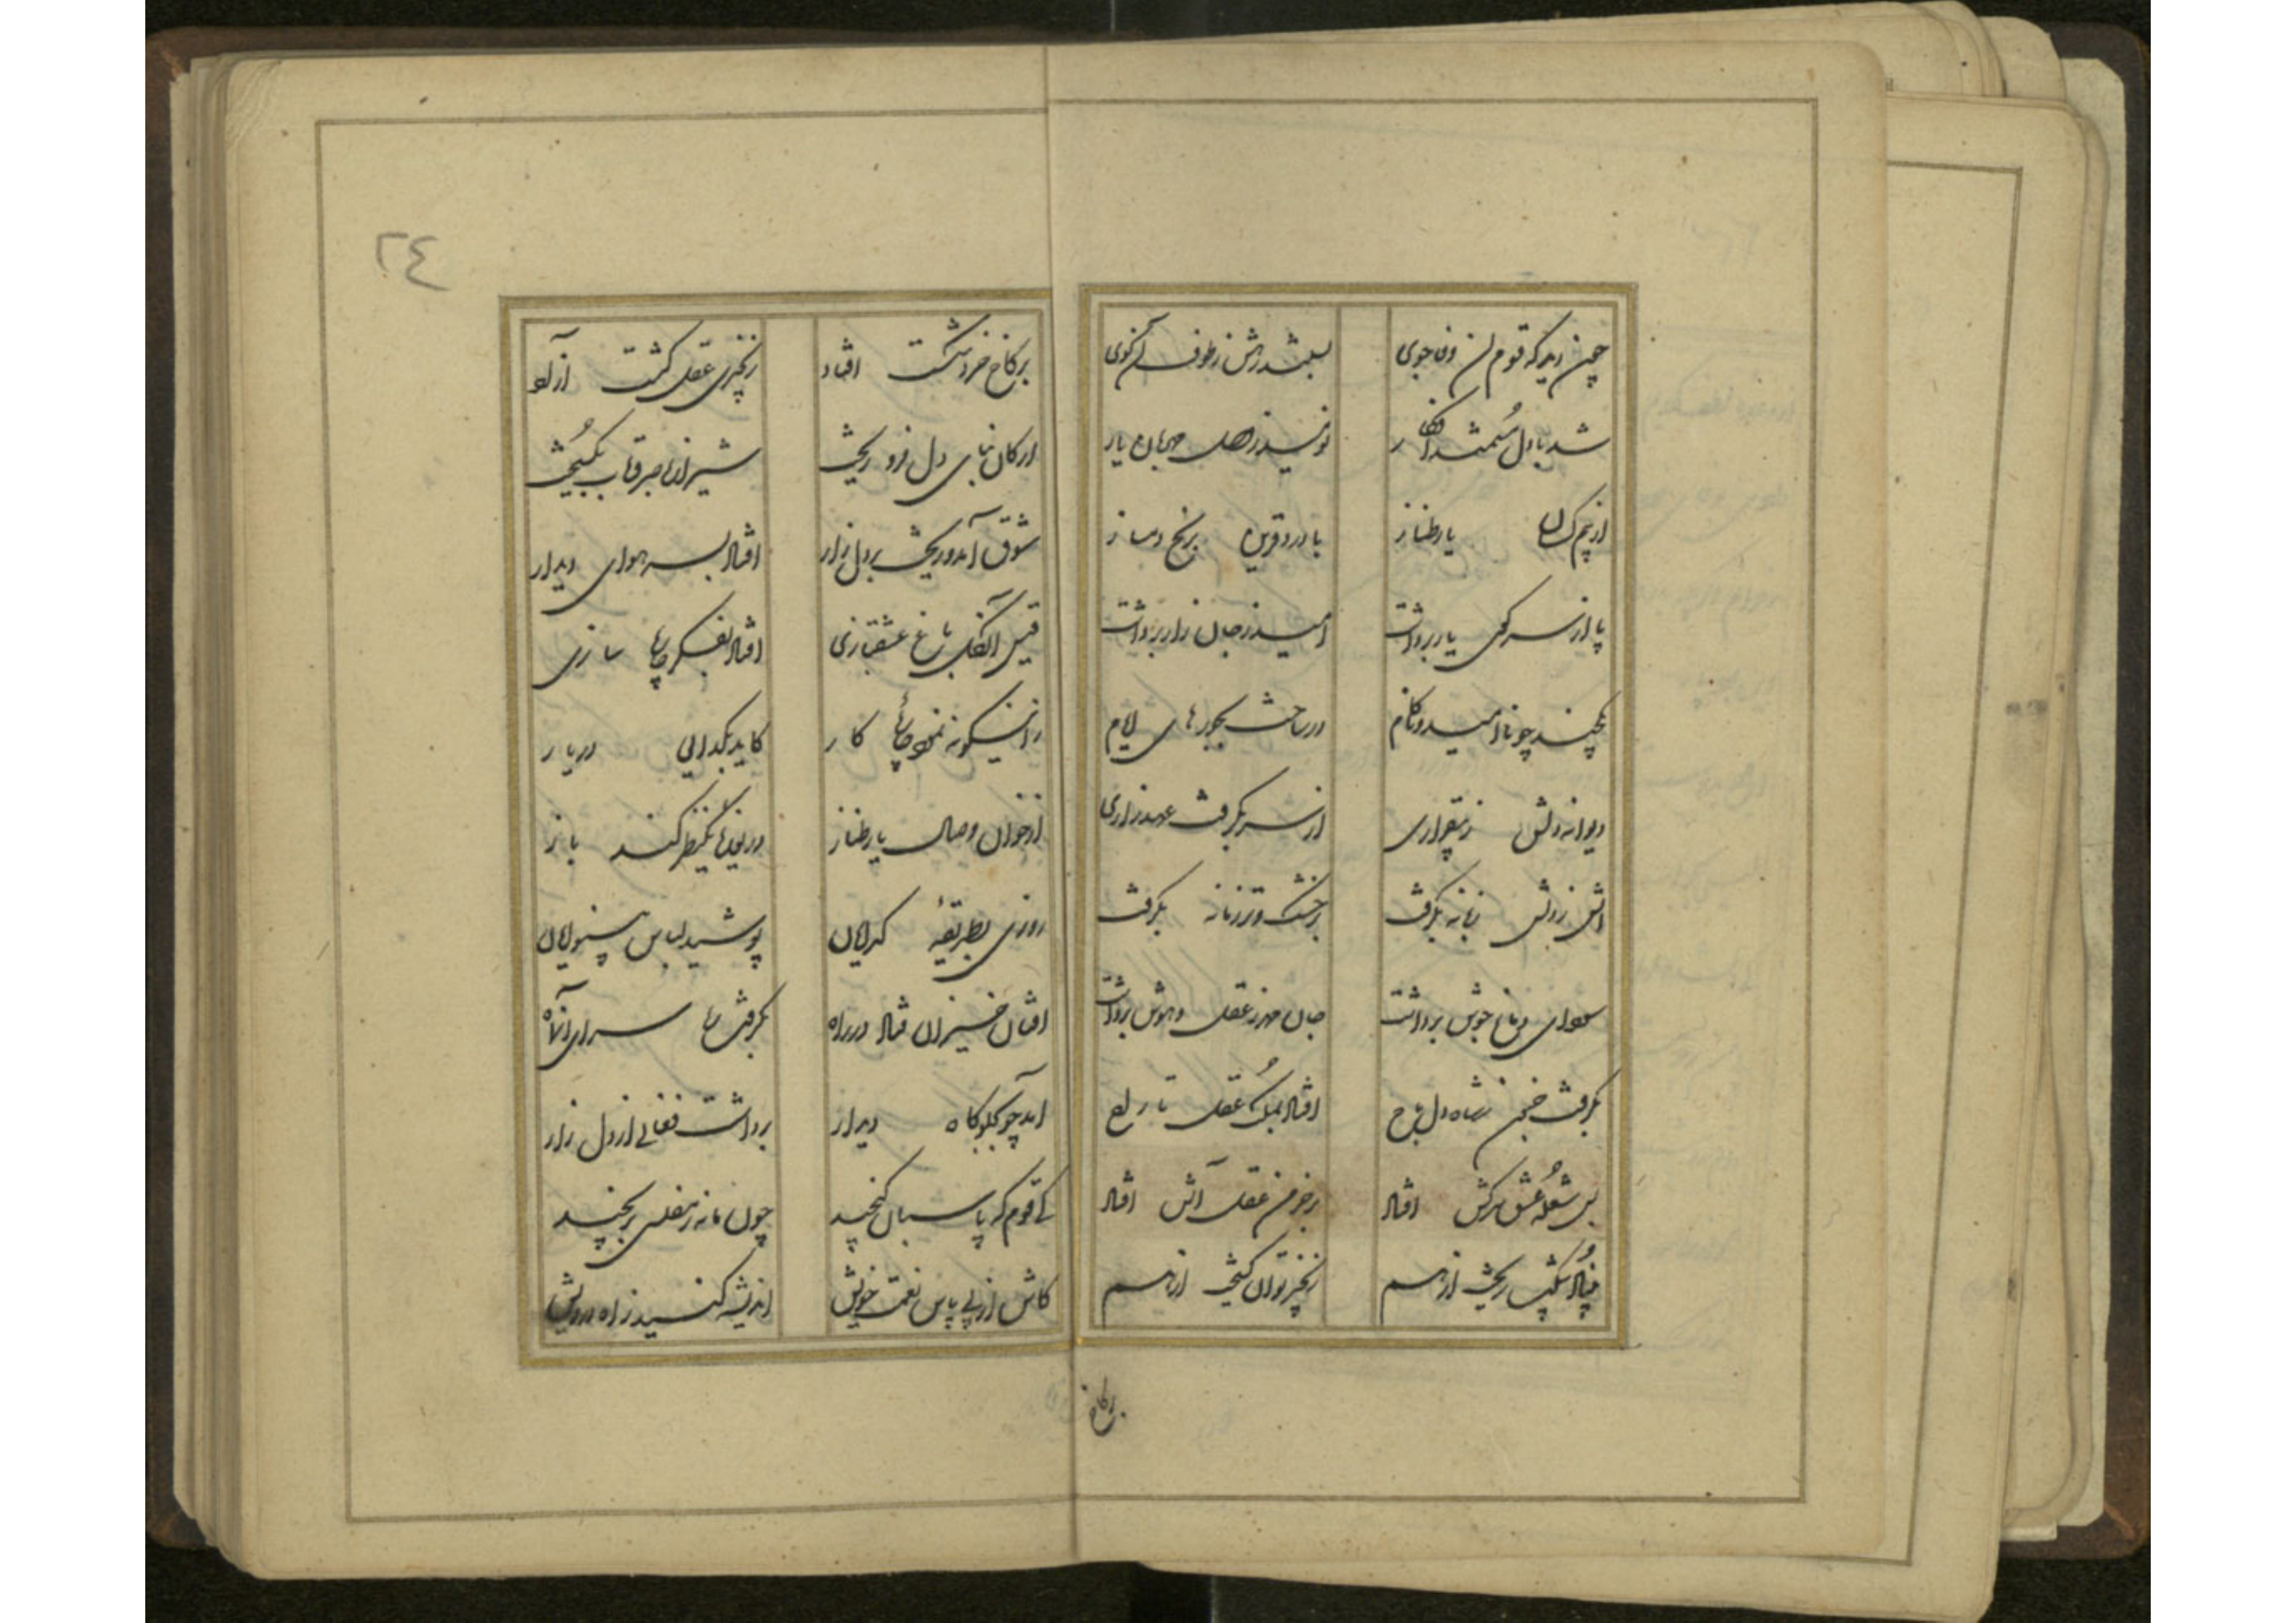 چون دید که قوم آن وفا جوی بستند رهش ز طوف آن کوی
شد با دل مستمند افکار نومید ز وصل مهربان یار
از بیم کسان یار طناز با درد قرین برنج دمساز
پا از سر کوی یار برداشت امید ز جان زار برداشت
یکچند چو نا امید و ناکام در ساخت بجورهای ایام
دیوانه دلش ز بیقراری از سر بگرفت عهد زاری
آتش ز دلش زبانه بگرفت بر خشک و تر زمانه بگرفت
سودای دماغ جوش برداشت جان مهر ز عقل و هوش برداشت
بگرفت جنون ز شاه دل باج افتاد بملک عقل تاراج
بس شعله عشق سرکش افتاد بر خرمن عقل آتش افتاد
بنیاد شکیب ریخت از هم زنجیر توان گسیخت از هم
بر کاخ
٢٤
بر کاخ خرد شکست افتاد زنجیری عقل گشت آزاد
ارکان بنای دل فرو ریخت شیرازه صبر و تاب بگسیخت
شوق آمد و ریخت بر دل زار افتاد بسر هوای دیدار
قیس آن گل باغ عشقبازی افتاد بفکر چاره سازی
زانگونه نمود چاره کار کاید بگدایی در یار
از خوان وصال یار طناز دریوزه یکنظر کند باز
روزی بطریقه گدایان پوشید لباس بینوایان
افتان خیزان فتاد در راه بگرفت ره سرای آنماه
آمد چو بجلوگاه دیدار برداشت فغانی از دل زار
کای قوم که پاسبان گنجید چون ما نه ز مفلسی برنجید
کاش از پی پاس نعمت خویش اندیشه کنید ز آه درویش